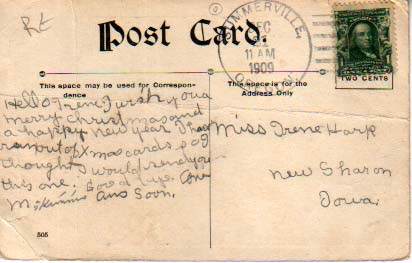 Post Card.
SUMMERVILLE,
DEC
11 AM
1909
TWO CENTS
This space may be used for Correspon-
dence
This space is for the
Address Only
Hello Irene I wish you a
merry Christmas and
a happy new year I have
run out of Xmas cards so I
thought I would send you
this one. Good bye.
Ans Soon.
Miss Irene Harp
New Sharon
Iowa.
505